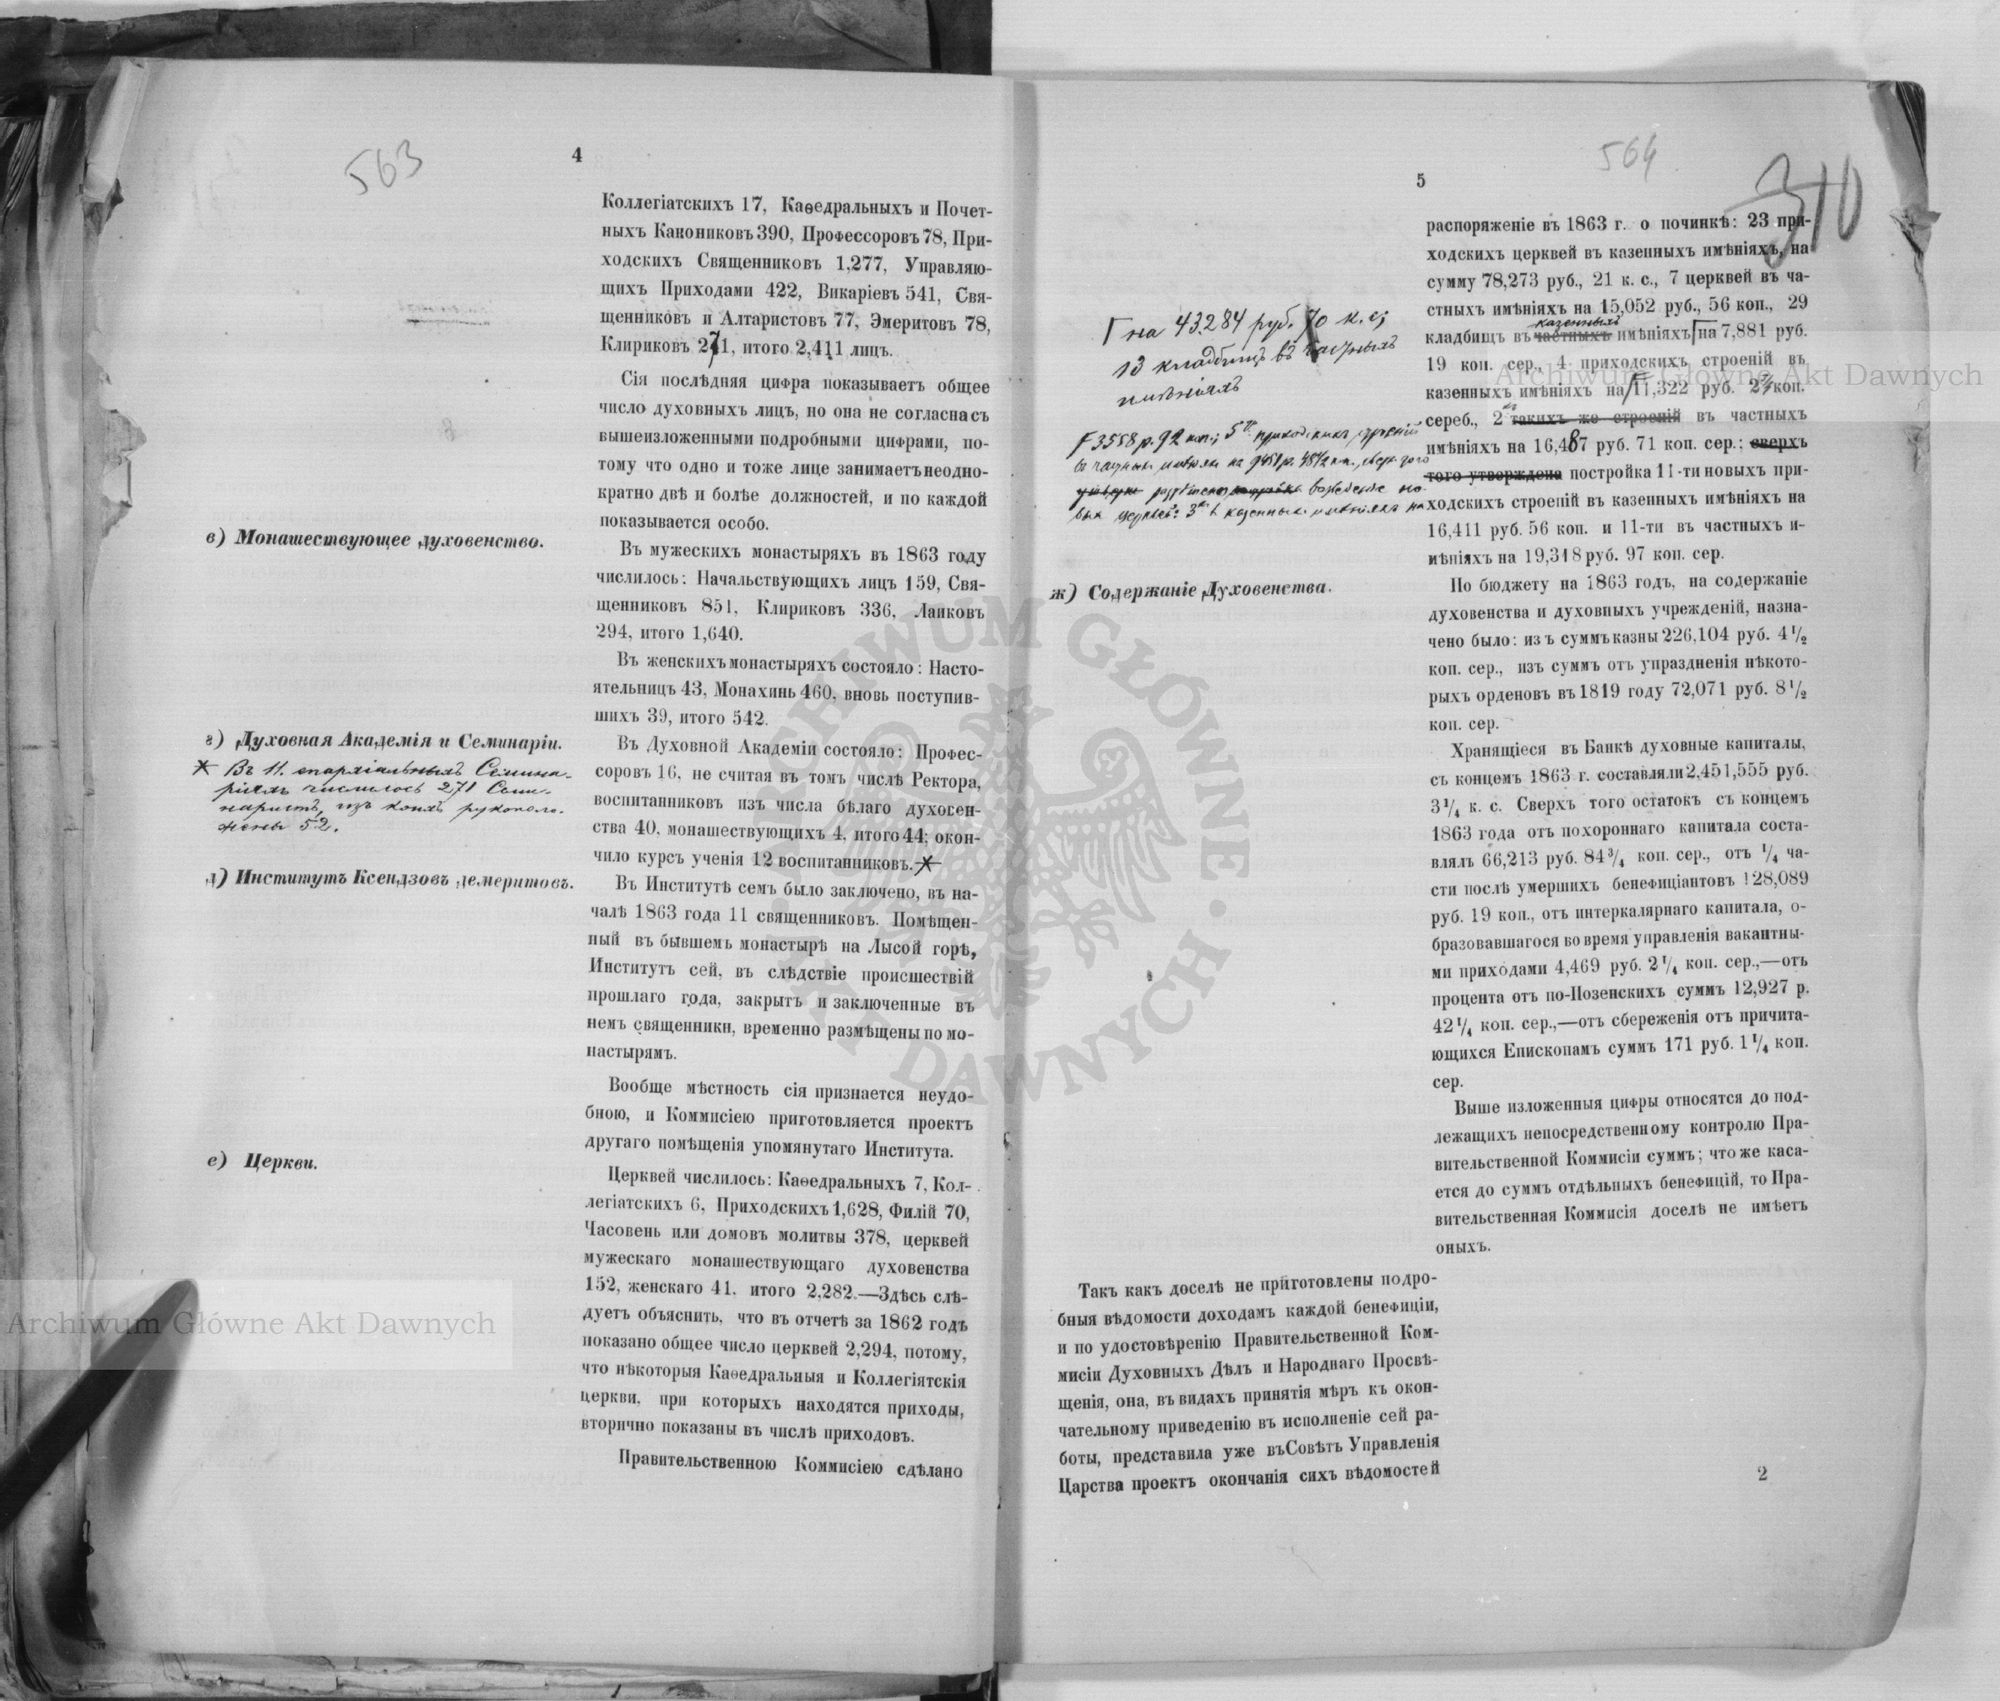 563
4
Коллегіатскихъ 17, Каѳедральныхъ и Почет-
ныхъ Канониковъ 390, Профессоровъ 78, При-
ходскихъ Священниковъ 1,277, Управляю-
щихъ Приходами 422, Викаріевъ 541, Свя-
щенниковъ и Алтаристовъ 77, Эмеритовъ 78,
Клириковъ 271, итого 2,411 лицъ.
Сія послѣдняя цифра показываетъ общее
число духовныхъ лицъ, но она не согласна съ
вышеизложенными подробными цифрами, по-
тому что одно и тоже лице занимаетъ неодно-
кратно двѣ и болѣе должностей, и по каждой
показывается особо.
в) Монашествующее духовенство.
Въ мужескихъ монастыряхъ въ 1863 году
числилось: Начальствующихъ лицъ 159, Свя-
щенниковъ 851, Клириковъ 336, Лаиковъ
294, итого 1,640.
Въ женскихъ монастыряхъ состояло: Насто-
ятельницъ 43, Монахинь 460, вновь поступив-
шихъ 39, итого 542.
г) Духовная Академія и Семинаріи.
Въ 11. епархіальныхъ Семина-
ріяхъ числилось 271 Семи-
наристъ, изъ коихъ рукополо-
жены 52.
Въ Духовной Академіи состояло: Профес-
соровъ 16, не считая въ томъ числѣ Ректора,
воспитанниковъ изъ числа бѣлаго духовен-
ства 40, монашествующихъ 4, итого 44; окон-
чило курсъ ученія 12 воспитанниковъ.
д) Институтъ Ксендзовъ демеритовъ.
Въ Институтѣ семъ было заключено, въ на-
чалѣ 1863 года 11 священниковъ. Помѣщен-
ный въ бывшемъ монастырѣ на Лысой горѣ,
Институтъ сей, въ слѣдствіе происшествій
прошлаго года, закрытъ и заключенные въ
немъ священники, временно размѣщены по мо-
настырямъ.
Вообще мѣстность сія признается неудо-
бною, и Коммисіею приготовляется проектъ
другаго помѣщенія упомянутаго Института.
е) Церкви.
Церквей числилось: Каѳедральныхъ 7, Кол-
легіатскихъ 6, Приходскихъ 1,628, Филій 70,
Часовень или домовъ молитвы 378, церквей
мужескаго монашествующаго духовенства
152, женскаго 41, итого 2,282.—Здѣсь слѣ-
дуетъ объяснить, что въ отчетѣ за 1862 годъ
показано общее число церквей 2,294, потому,
что нѣкоторыя Каѳедральныя и Коллегіятскія
церкви, при которыхъ находятся приходы,
вторично показаны въ числѣ приходовъ.
Правительственною Коммисіею сдѣлано
564
310
5
распоряженіе въ 1863 г. о починкѣ: 23 при-
ходскихъ церквей въ казенныхъ имѣніяхъ, на
сумму 78,273 руб., 21 к. с., 7 церквей въ ча-
стныхъ имѣніяхъ на 15,052 руб., 56 коп., 29
казенныхъ
кладбищъ въ частныхъ имѣніяхъ на 7,881 руб.
19 коп. сер., 4 приходскихъ строеній въ
казенныхъ имѣніяхъ на 11,322 руб. 2 коп.
сереб., 2 такихъ же строеній въ частныхъ
имѣніяхъ на 16,487 руб. 71 коп. сер.; сверхъ
того утверждена постройка 11-ти новыхъ при-
ходскихъ строеній въ казенныхъ имѣніяхъ на
16,411 руб. 56 коп. и 11-ти въ частныхъ и-
мѣніяхъ на 19,318 руб. 97 коп. сер.
на 43,284 руб. 70 к. с;
13 кладбищъ въ частныхъ
имѣніяхъ
3558 р. 92 коп.; 5 приходскихъ строеній
въ имѣніяхъ на
новыхъ церквей: 3 въ казенныхъ имѣніяхъ на
ж) Содержаніе Духовенства.
По бюджету на 1863 годъ, на содержаніе
духовенства и духовныхъ учрежденій, назна-
чено было: изъ суммъ казны 226,104 руб. 4 1/2
коп. сер., изъ суммъ отъ упраздненія нѣкото-
рыхъ орденовъ въ 1819 году 72,071 руб. 8 1/2
коп. сер.
Хранящіеся въ Банкѣ духовные капиталы,
съ концемъ 1863 г. составляли 2,451,555 руб.
3 1/4 к. с. Сверхъ того остатокъ съ концемъ
1863 года отъ похороннаго капитала соста-
влялъ 66,213 руб. 84 3/4 коп. сер., отъ 1/4 ча-
сти послѣ умершихъ бенефиціантовъ 128,089
руб. 19 коп., отъ интеркалярнаго капитала, о-
бразовавшагося во время управленія вакантны-
ми приходами 4,469 руб. 2 1/4 коп. сер.,—отъ
процента отъ по-Позенскихъ суммъ 12,927 р.
42 1/4 коп. сер.,—отъ сбереженія отъ причита-
ющихся Епископамъ суммъ 171 руб. 1 1/4 коп.
сер.
Выше изложенныя цифры относятся до под-
лежащихъ непосредственному контролю Пра-
вительственной Коммисіи суммъ; что же каса-
ется до суммъ отдѣльныхъ бенефицій, то Пра-
вительственная Коммисія доселѣ не имѣетъ
оныхъ.
Такъ какъ доселѣ не приготовлены подро-
бныя вѣдомости доходамъ каждой бенефиціи,
и по удостовѣренію Правительственной Ком-
мисіи Духовныхъ Дѣлъ и Народнаго Просвѣ-
щенія, она, въ видахъ принятія мѣръ къ окон-
чательному приведенію въ исполненіе сей ра-
боты, представила уже въ Совѣтъ Управленія
Царства проектъ окончанія сихъ вѣдомостей
2
Archiwum Główne Akt Dawnych
Archiwum Główne Akt Dawnych
ARCHIWUM GŁÓWNE AKT DAWNYCH